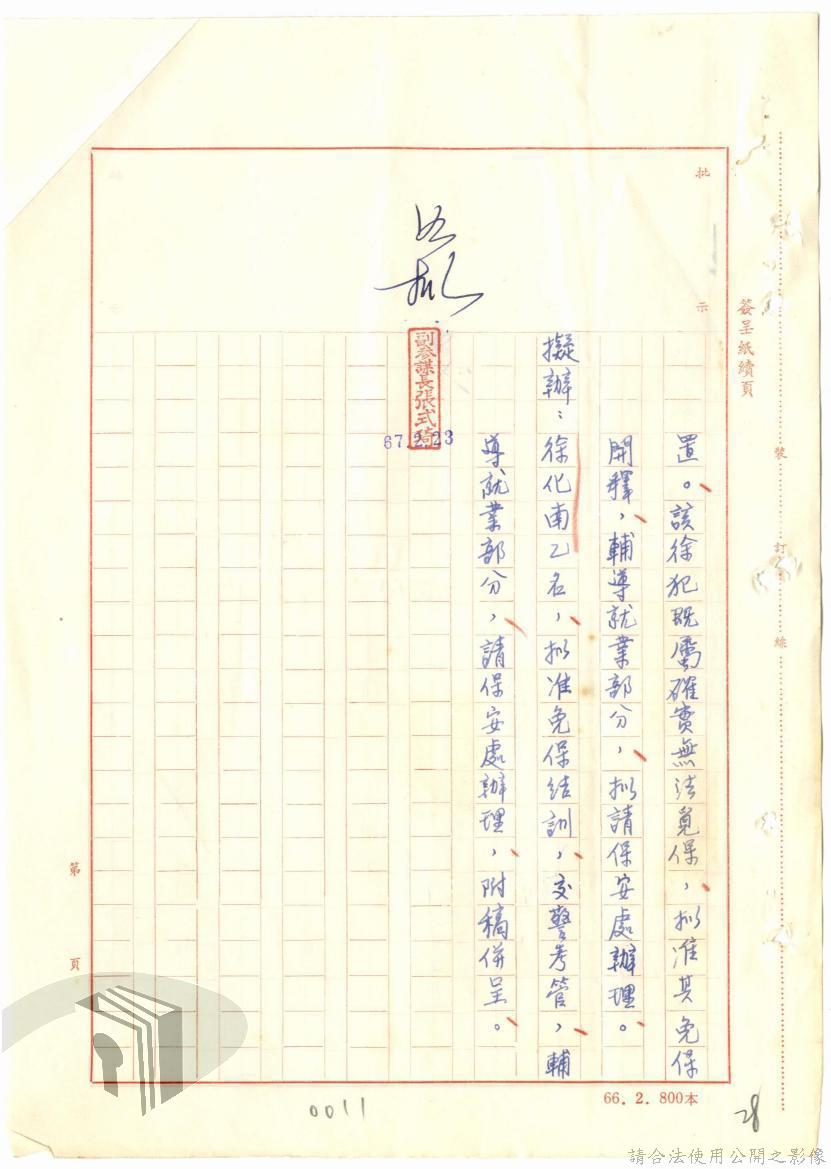 簽呈紙續頁
裝訂線
批示
置。該徐犯既屬確實無法覓保，拟准其免保
開釋，輔導就業部分，拟請保安處辦理。
擬辦：徐化南乙名，拟准免保结訓，交警考管，輔
導就業部分，請保安處辦理，附稿併呈。
副參謀長張式琦
67.2.23
第頁
66.2.800本
0011
28
請合法使用公開之影像